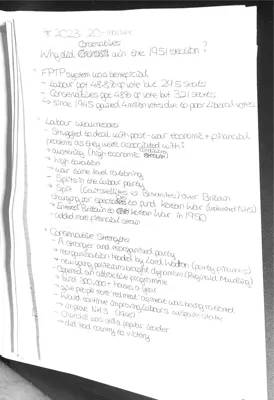 * 2023 20-marker
Conservatives
Why did win the 1951 election?
· FPTP system was beneficial
- Labour got 48.8% of vote but 295 states
- Conservatives got 48% of vote but 321 states
↳ since 1945 gained 4 million votes due to poor Liberal votes
· Labour weaknesses
- Struggled to deal with post-war economic + financial
problems as they were associated with:
→ austerity (high economic
→ high taxation
→ war time level rationing
- Splits in the Labour party
→ Split (Gaitskellites vs Bevanites) over Britain
charging for spectacles to fund korean war (undermined NHS)
- Entered Britain to korean war in 1950
- added more financial strain
· Conservative Strengths
- A stronger and reorganised party
→ reorganisation headed by Lord Woolton (party finances)
→ new young politicians brought dynamism (Reginald Maudling)
- Offered an attractive programme
→ build 300,000+ houses a year
→ give people more red meat as meat was being rationed
- Would continue improving Labour's welfare state
→ improve NHS (1946)
- Churchill was still a popular leader
→ did lead country to victory